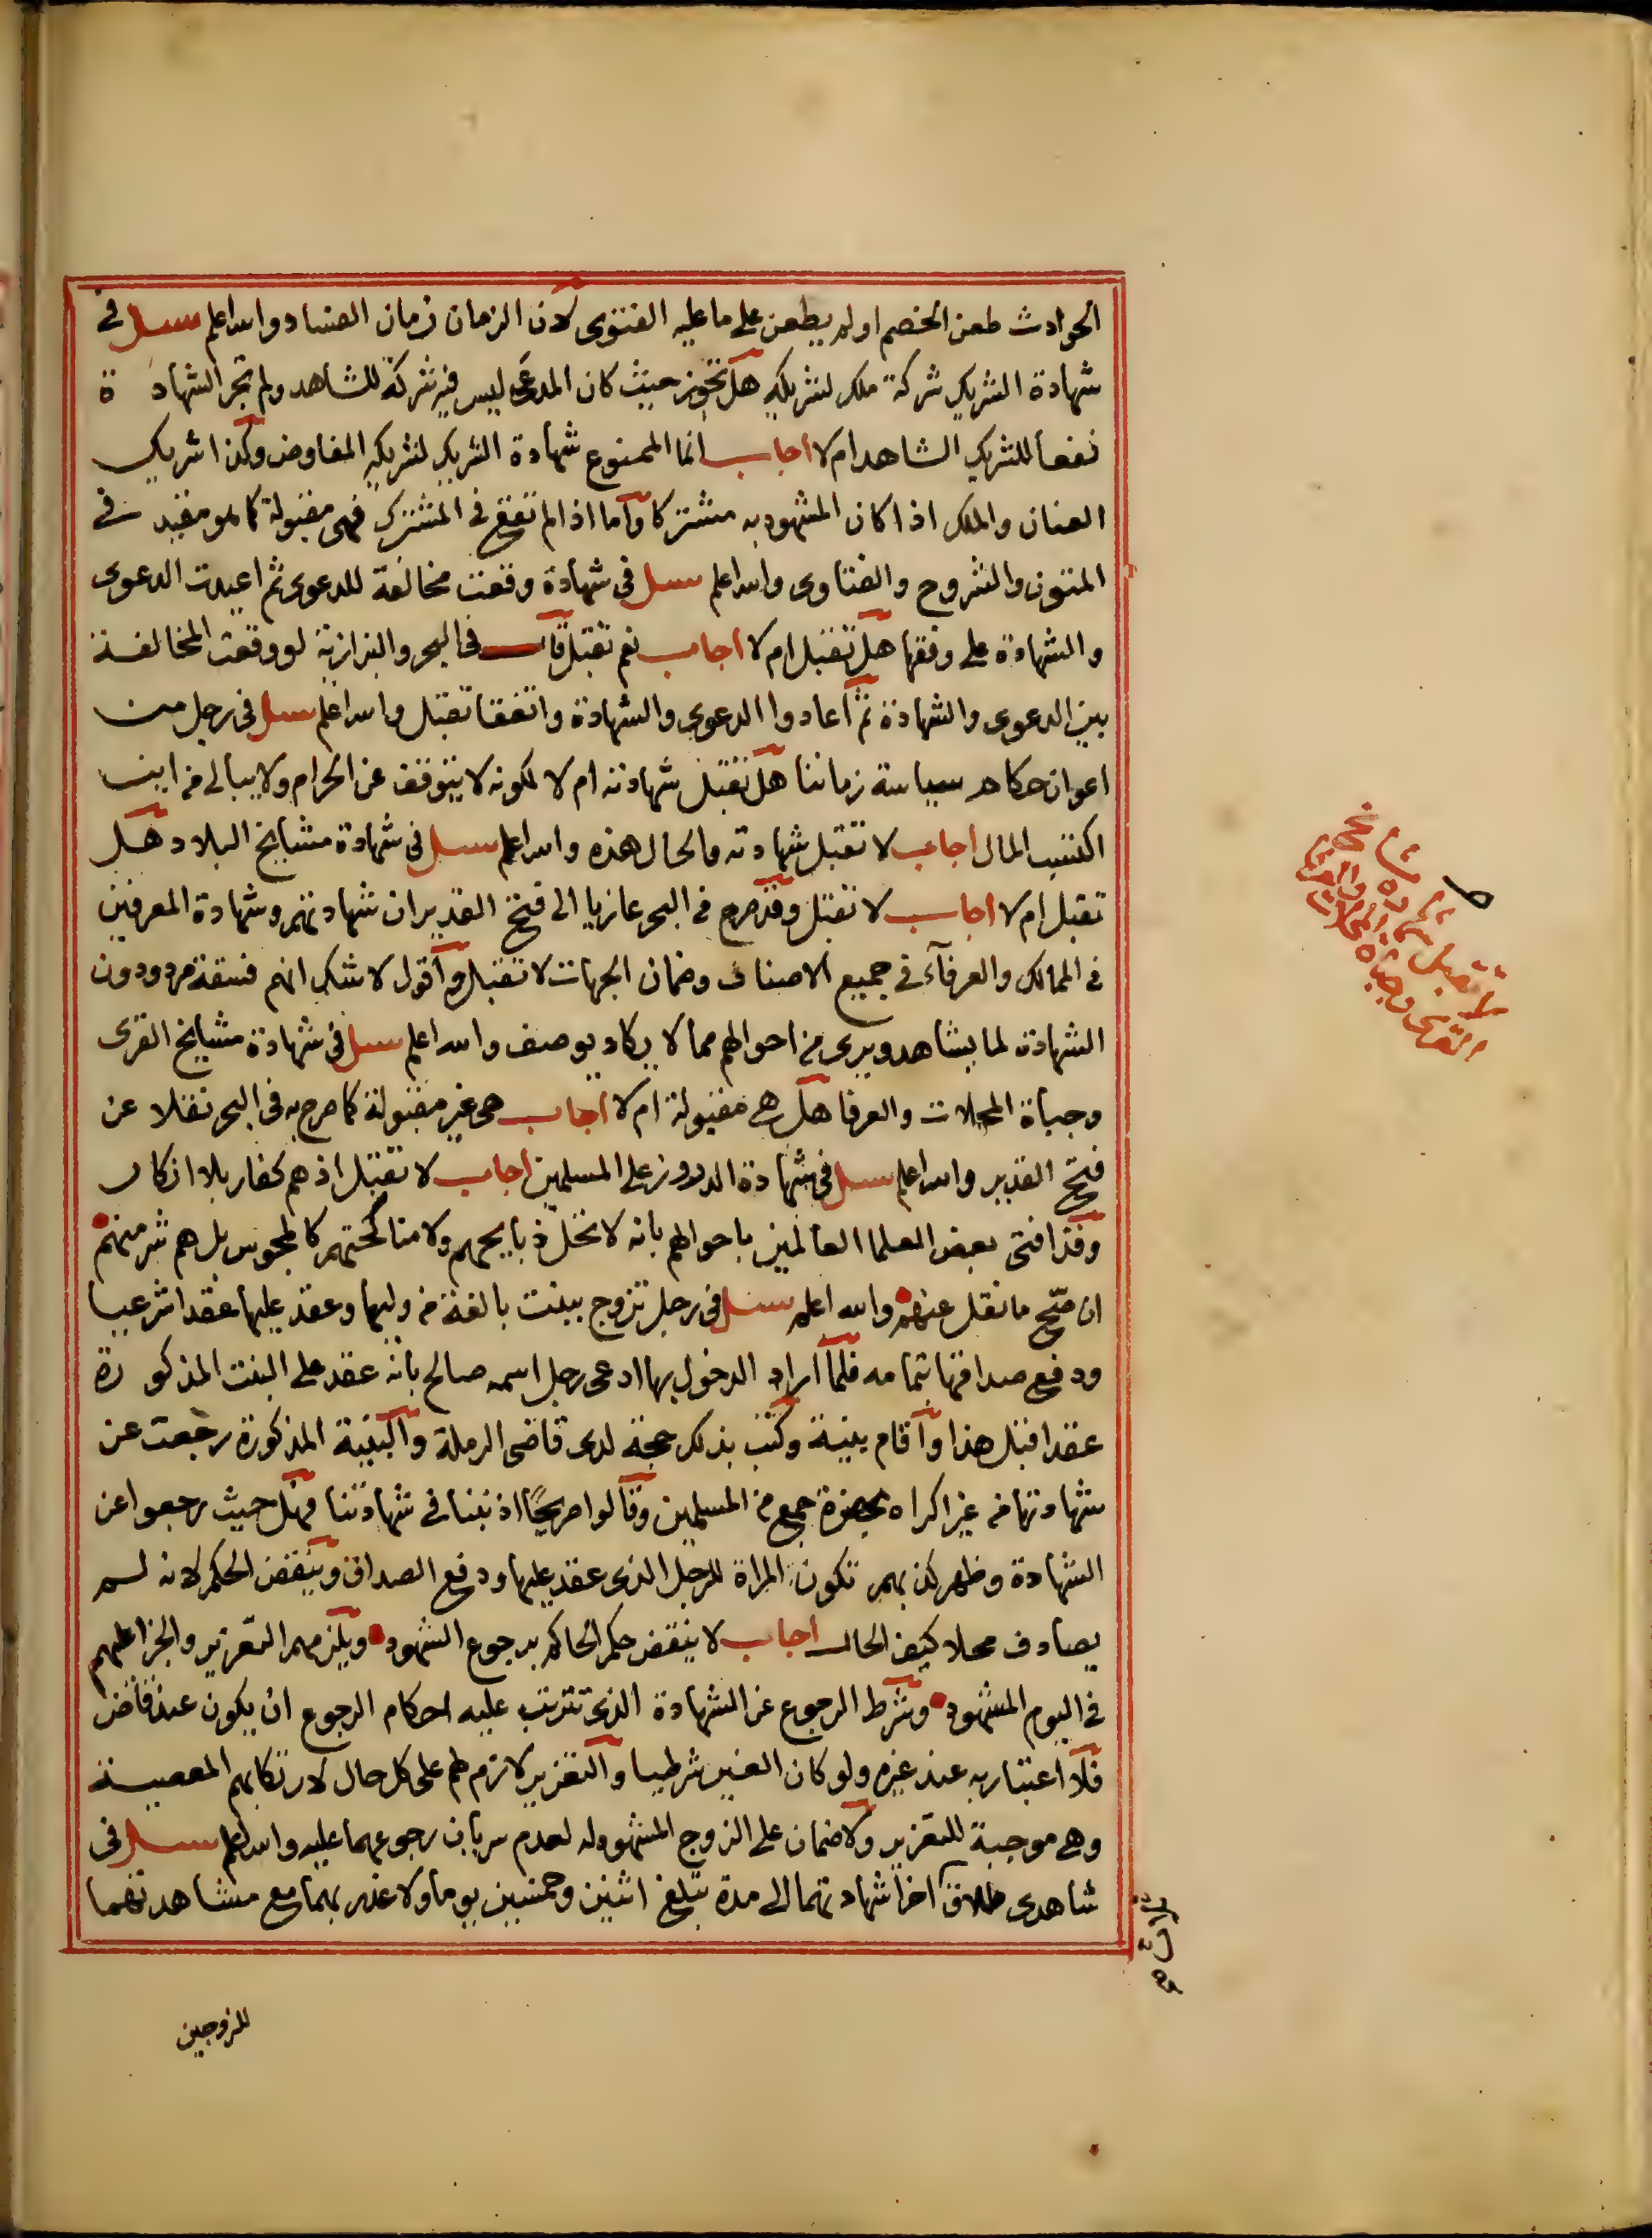 الحوادث طعن الخصم او لم يطعن على ما عليه الفتوى لان الزمان زمان الفساد والله اعلم سئل في
شهادة الشريك شركة ملك لشريكه هل تجوز حيث كان المدعى ليس فيه شركة للشاهد ولم تجر الشهادة
نفعا للشريك الشاهد ام لا اجاب انما الممنوع شهادة الشريك لشريكه المفاوض وكذا شريك
العنان والملك اذا كان المشهود به مشتركا واما اذا لم تقع في المشترك فهى مقبولة كما هو مقيد في
المتون والشروح والفتاوى والله اعلم سئل في شهادة وقعت مخالفة للدعوى ثم اعيدت الدعوى
والشهادة على وفقها هل تقبل ام لا اجاب نعم تقبل قال في البحر والبزازية لو وقعت المخالفة
بين الدعوى والشهادة ثم اعادوا الدعوى والشهادة واتفقا تقبل والله اعلم سئل في رجل من
اعوان حكام سياسة زماننا هل تقبل شهادته ام لا لكونه لا يتوقف عن الحرام ولا يبالى من اين
اكتسب المال اجاب لا تقبل شهادته والحال هذه والله اعلم سئل في شهادة مشايخ البلاد هل
تقبل ام لا اجاب لا تقبل وقد صرح في البحر عازيا الى فتح القدير ان شهادتهم وشهادة المعرفين
في الممالك والعرفآء في جميع الاصناف وضمان الجهات لا تقبل واقول لا شك انهم فسقة مردودون
الشهادة لما يشاهد ويرى من احوالهم مما لا يكاد يوصف والله اعلم سئل في شهادة مشايخ القرى
وجباة المحلات والعرفا هل هى مقبولة ام لا اجاب هى غير مقبولة كما صرح به في البحر نقلا عن
فتح القدير والله اعلم سئل في شهادة الدروز على المسلمين اجاب لا تقبل اذ هم كفار بلا انكار
وقد افتى بعض العلما العالمين باحوالهم بانه لا تحل ذبايحهم ولا مناكحتهم كالمجوس بل هم شر منهم
ان صح ما نقل عنهم والله اعلم سئل في رجل تزوج ببنت بالغة من وليها وعقد عليها عقدا شرعيا
ودفع صداقها بتمامه فلما اراد الدخول بها ادعى رجل اسمه صالح بانه عقد على البنت المذكورة
عقدا قبل هذا واقام بينة وكتب بذلك حجة لدى قاضى الرملة والبينة المذكورة رجعت عن
شهادتها من غير اكراه بحضرة جمع من المسلمين وقالوا صريحًا اذنبنا في شهادتنا فهل حيث رجعوا عن
الشهادة وظهر كذبهم تكون المراة للرجل الذى عقد عليها ودفع الصداق وينقض الحكم لانه لم
يصادف محلا كيف الحال اجاب لا ينقض حكم الحاكم برجوع الشهود ويلزمهم التعزير والجزا عليهم
في اليوم المشهود وشرط الرجوع عن الشهادة الذى تترتب عليه احكام الرجوع ان يكون عند قاض
فلا اعتبار به عند غيره ولو كان الغير شرطيا والتعزير لازم لهم على كل حال لارتكابهم المعصية
وهى موجبة للتعزير ولا ضمان على الزوج المشهود له لعدم سريان رجوعهما عليه والله اعلم سئل في
شاهدى طلاق اخرا شهادتهما الى مدة تبلغ اثنين وخمسين يوما ولا عذر بهما مع مشاهدتهما
للزوجين
لا تقبل شهادة مشايخ
القرى وجباة المحلات والعرفا